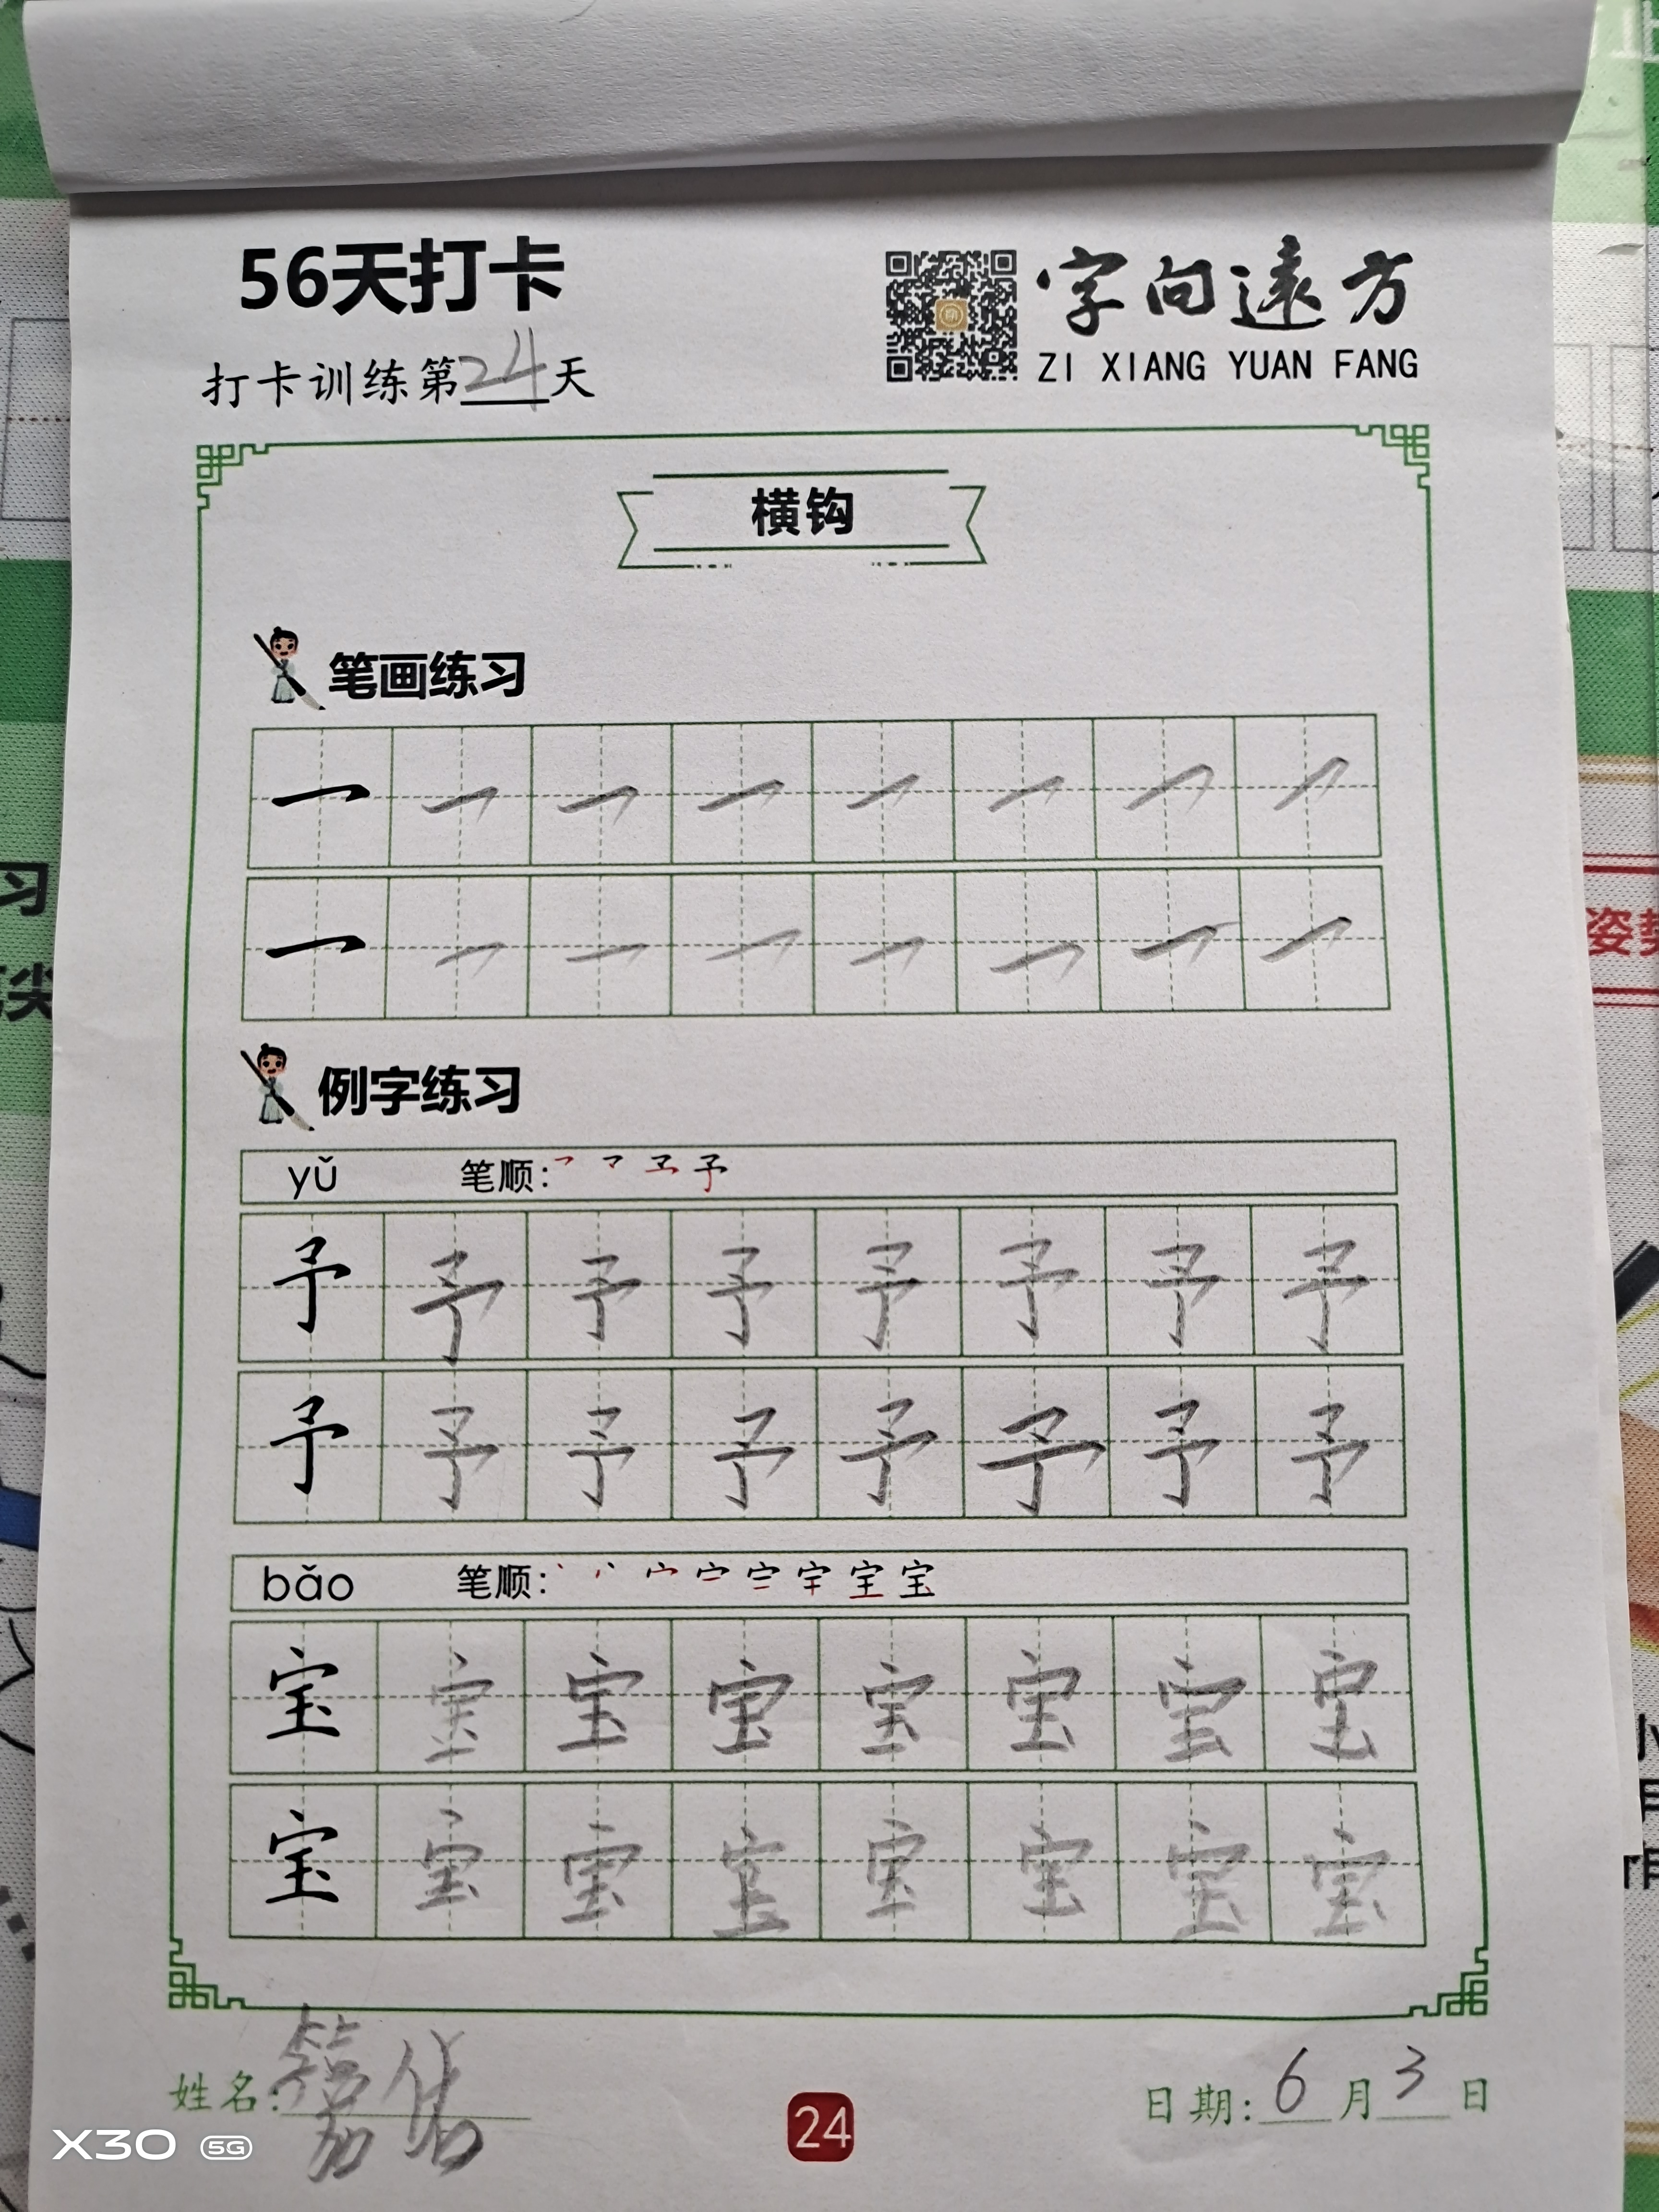 56天打卡
字向遠方
ZI XIANG YUAN FANG
打卡训练第24天
横钩
笔画练习
例字练习
yǔ 笔顺: 予
予 予 予 予 予 予 予 予
予 予 予 予 予 予 予 予
bǎo 笔顺: 宝
宝 宝 宝 宝 宝 宝 宝 宝
宝 宝 宝 宝 宝 宝 宝 宝
姓名:
日期: 6月3日
24
X30 5G
习
尖
姿势